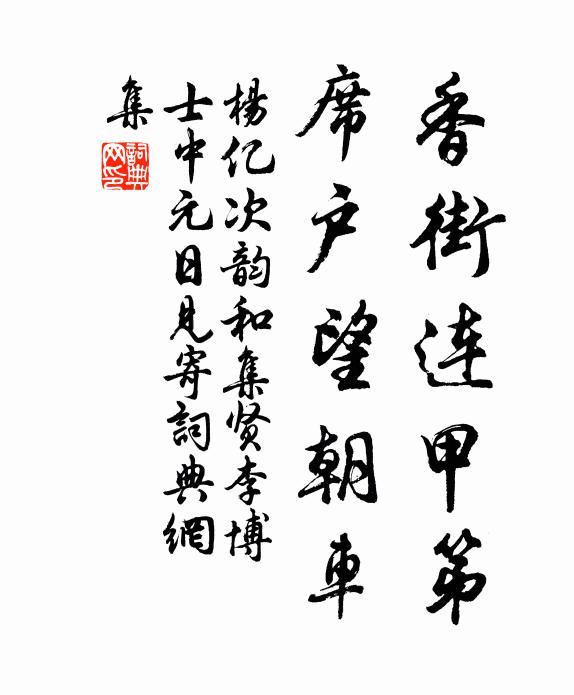 香街连甲第
席户望朝車
楊亿次韵和集贤李博
士中元日見寄詞典網
集
詞典
网印